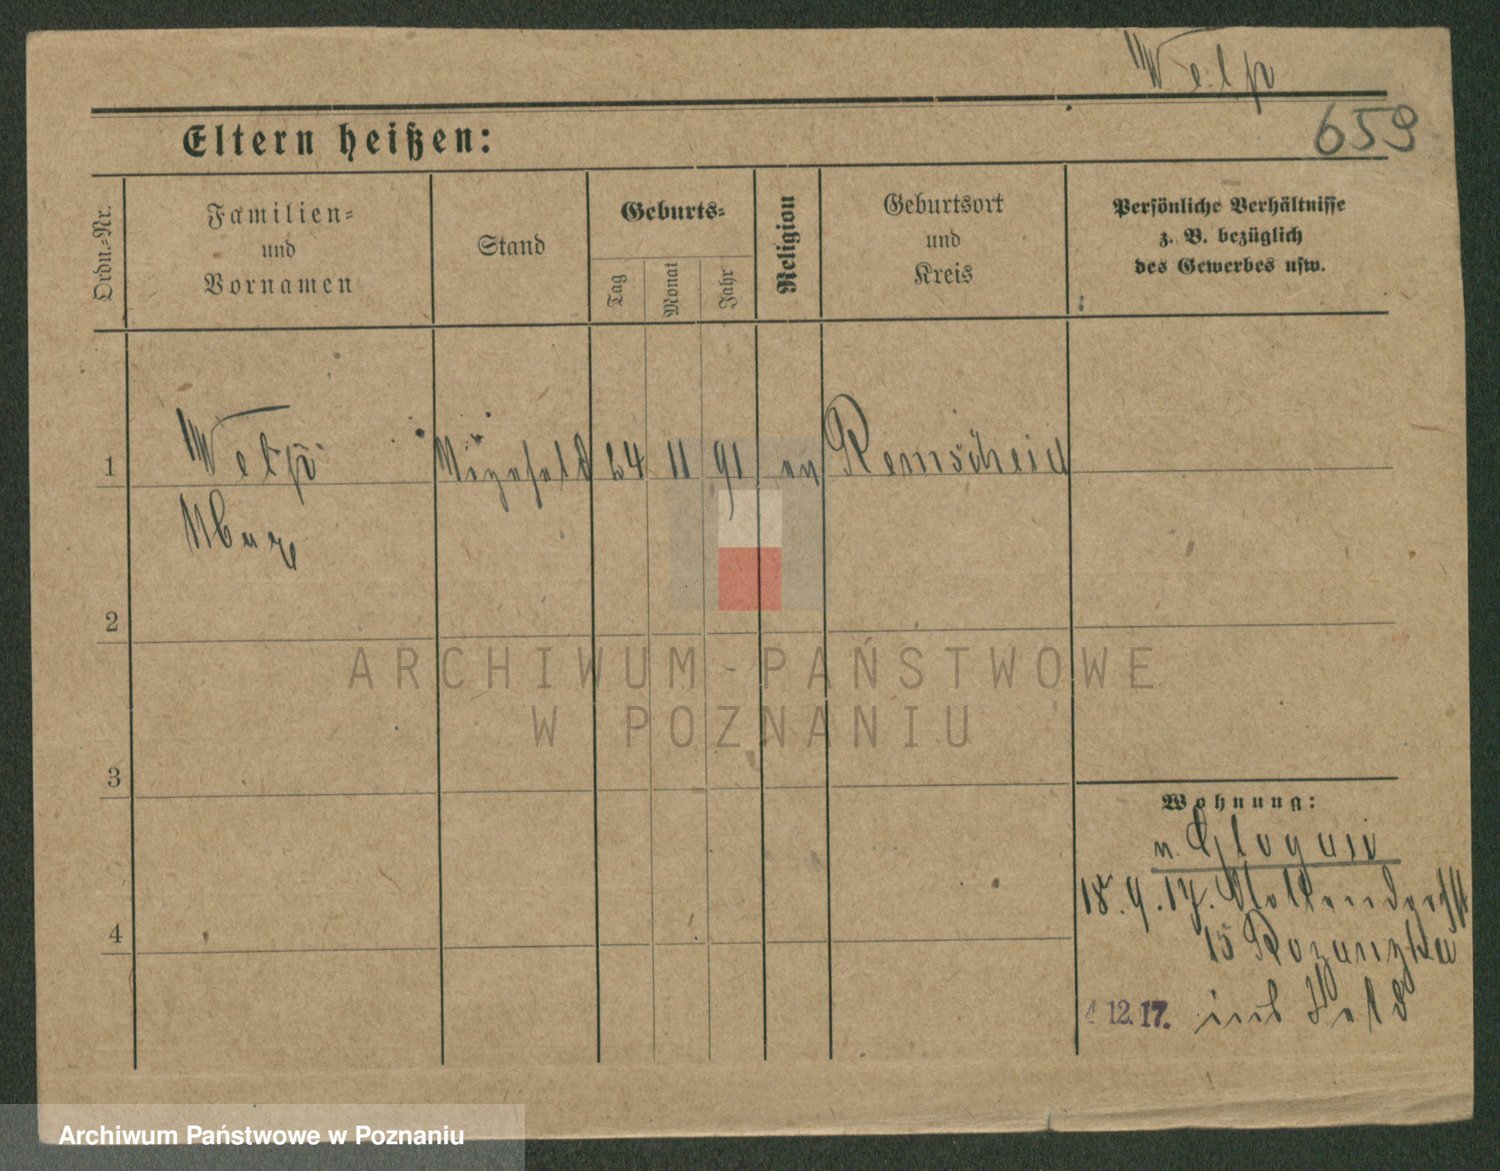 Welp
659
Eltern heißen:
Ordn.-Nr.
Familien-
und
Vornamen
Stand
Geburts-
Tag
Monat
Jahr
Religion
Geburtsort
und
Kreis
Persönliche Verhältnisse
z. B. bezüglich
des Gewerbes usw.
1 Welp 24 11 91 ev Remscheid
Max
2
3
4
Wohnung:
n. Glogau
18.9.17.
15
4 12. 17. ins Feld
ARCHIWUM PAŃSTWOWE
W POZNANIU
Archiwum Państwowe w Poznaniu